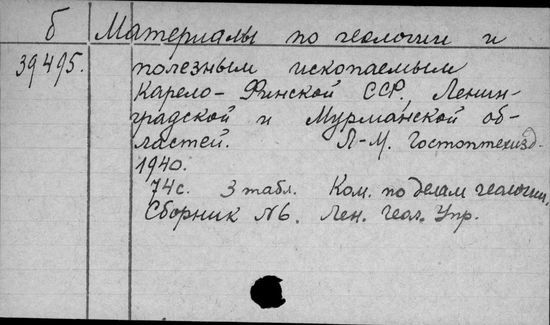 б Материалы по геологии и
39495. полезным ископаемым
Карело-Финской ССР, Ленин-
градской и Мурманской об-
ластей. Л-М. Гостоптехизд.
1940.
74с. 3 табл. Ком. по делам геологии.
Сборник №6. Лен. Геол. Упр.